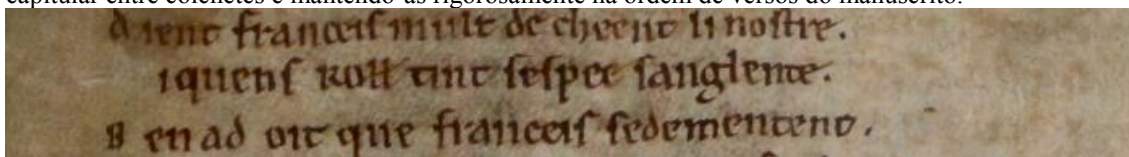 capitular entre colchetes e mantendo-as rigorosamente na ordem de versos do manuscrito.
D ient franceiſ mult de cheent li noſtre.
iquenſ Roll tint ſeſpee ſanglente.
B en ad oit que franceiſ ſedementent.